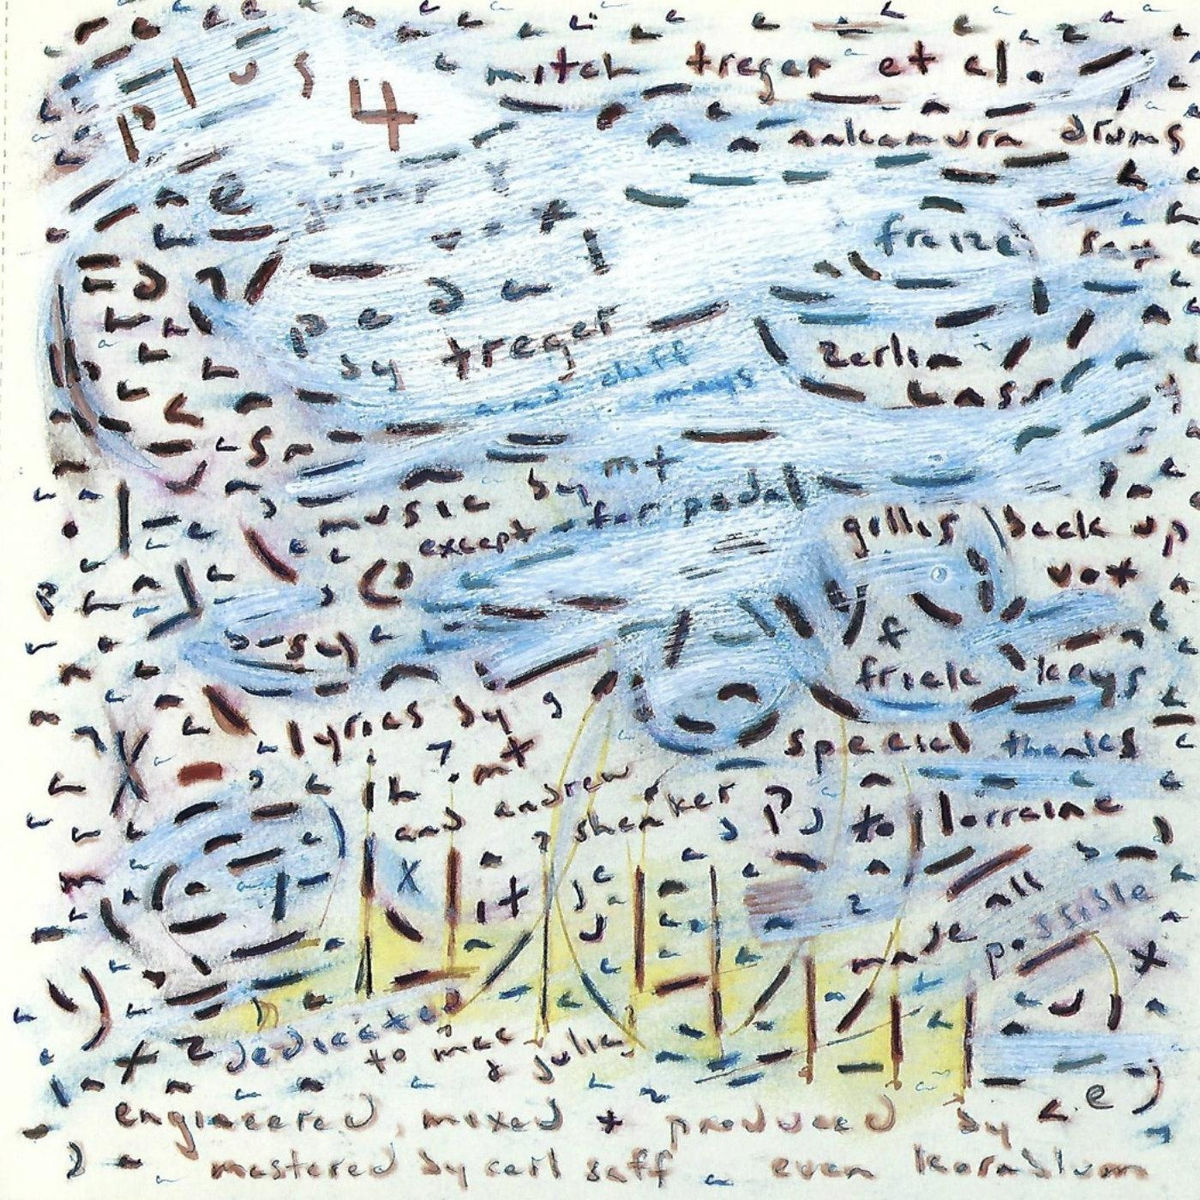 plus 4
mitch treger et al.
nakamura drums
guitar &
vox
freize sax
pedal
by treger
and diff mays
zerlin
bass
music by mt
except for pedal
gillis back up
vox
frick keys
lyrics by g
mt
and andrew
shenker
special thanks
to lorraine
made all
possible
dedicated
to mac
& julia
engineered, mixed + produced by
mastered by carl saff evan kornblum